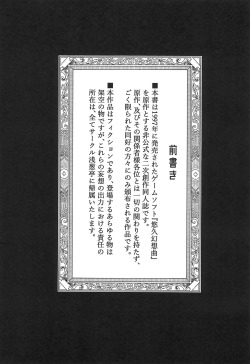 前書き
■本書は1997年に発売されたゲームソフト「悠久幻想曲」
を原作とする非公式な二次創作同人誌です。
原作、及びその関係者様各位とは一切の関わりを持たず、
ごく限られた同好の方々にのみ頒布される作品です。
■本作品はフィクションであり、登場するあらゆる物は
架空の物ですが、これらの妄想の出力における責任の
所在は、全てサークル浅葱亭に帰属いたします。